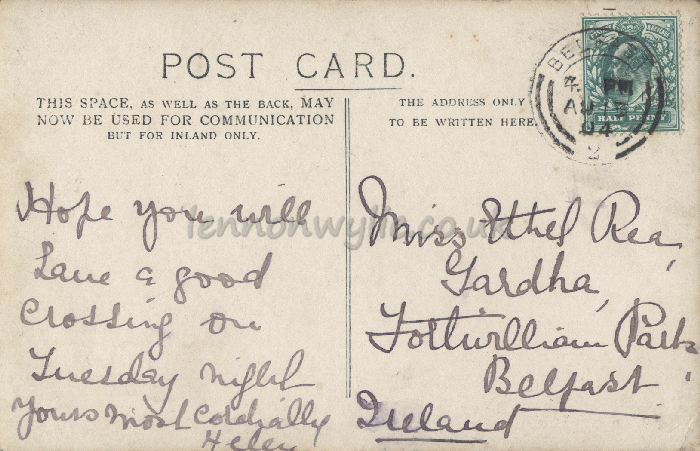 POST CARD.
THIS SPACE, AS WELL AS THE BACK, MAY
NOW BE USED FOR COMMUNICATION
BUT FOR INLAND ONLY.
THE ADDRESS ONLY
TO BE WRITTEN HERE.
PM
AU
04
2
HALF PENNY
Hope you will
have a good
crossing on
Tuesday night
Yours most cordially
Helen
Miss Ethel Rea,
Gardha,
Fortwilliam Park,
Belfast
Ireland
lennonwylie.co.uk